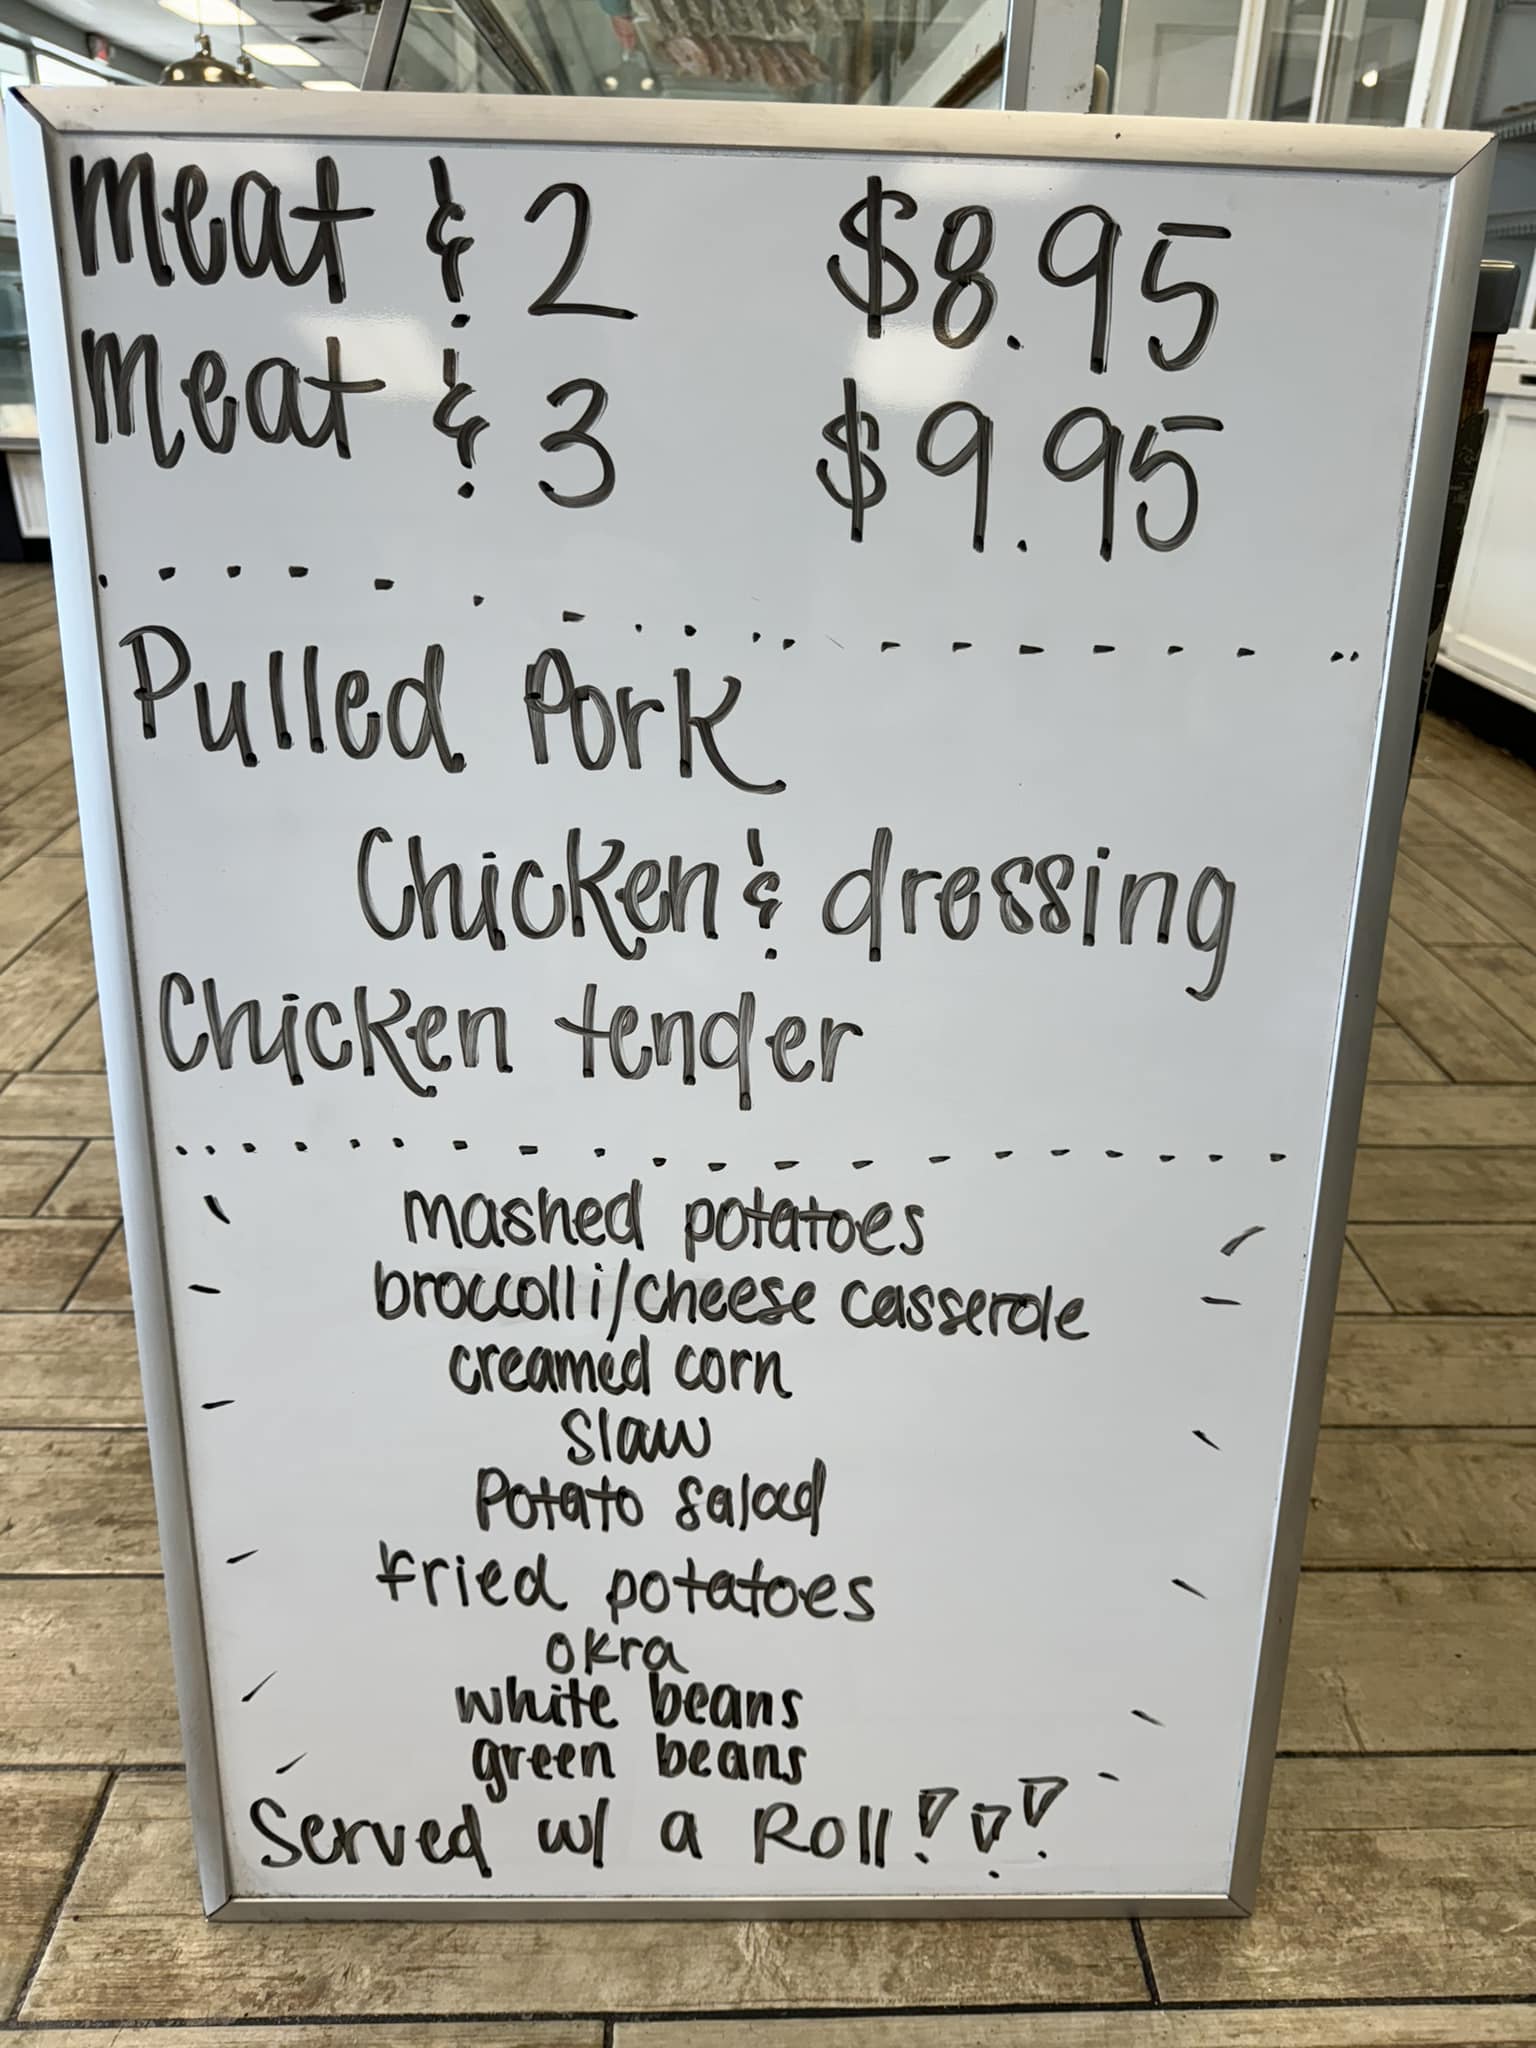 meat & 2 $8.95
meat & 3 $9.95
Pulled Pork
Chicken & dressing
Chicken tender
mashed potatoes
broccolli/cheese casserole
creamed corn
slaw
Potato salad
fried potatoes
okra
white beans
green beans
Served w/ a Roll!!!